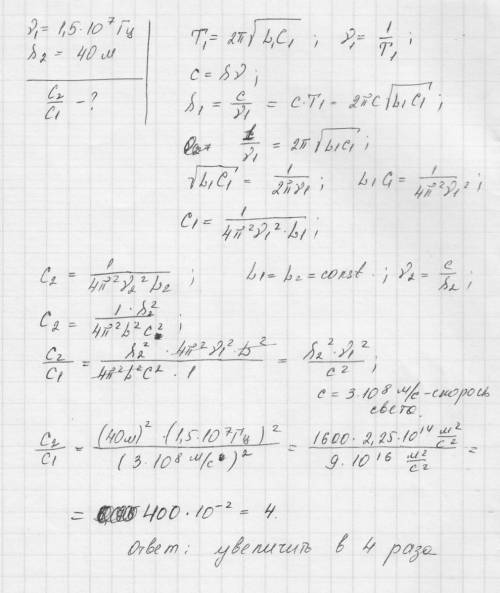 ν₁ = 1,5·10⁷ Гц
λ₂ = 40 м
C₂/C₁ - ?
T₁ = 2π√(L₁C₁) ; ν₁ = 1/T₁ ;
c = λν ;
λ₁ = c/ν₁ = c·T₁ - 2πc√(L₁C₁) ;
1/ν₁ = 2π√(L₁C₁) ;
√(L₁C₁) = 1/(2πν₁) ; L₁C₁ = 1/(4π²ν₁²) ;
C₁ = 1/(4π²ν₁²·L₁) ;
C₂ = 1/(4π²ν₂²L₂) ; L₁ = L₂ = const ; ν₂ = c/λ₂ ;
C₂ = 1·λ₂²/(4π²L²c²) ;
C₂/C₁ = λ₂²·4π²ν₁²·L²/(4π²L²c²·1) = λ₂²·ν₁²/c² ;
c = 3·10⁸ м/с - скорость
света.
C₂/C₁ = (40м)²·(1,5·10⁷Гц)²/(3·10⁸ м/с)² = 1600·2,25·10¹⁴ м²/с² / 9·10¹⁶ м²/с² =
= 400·10⁻² = 4.
Ответ: увеличить в 4 раза